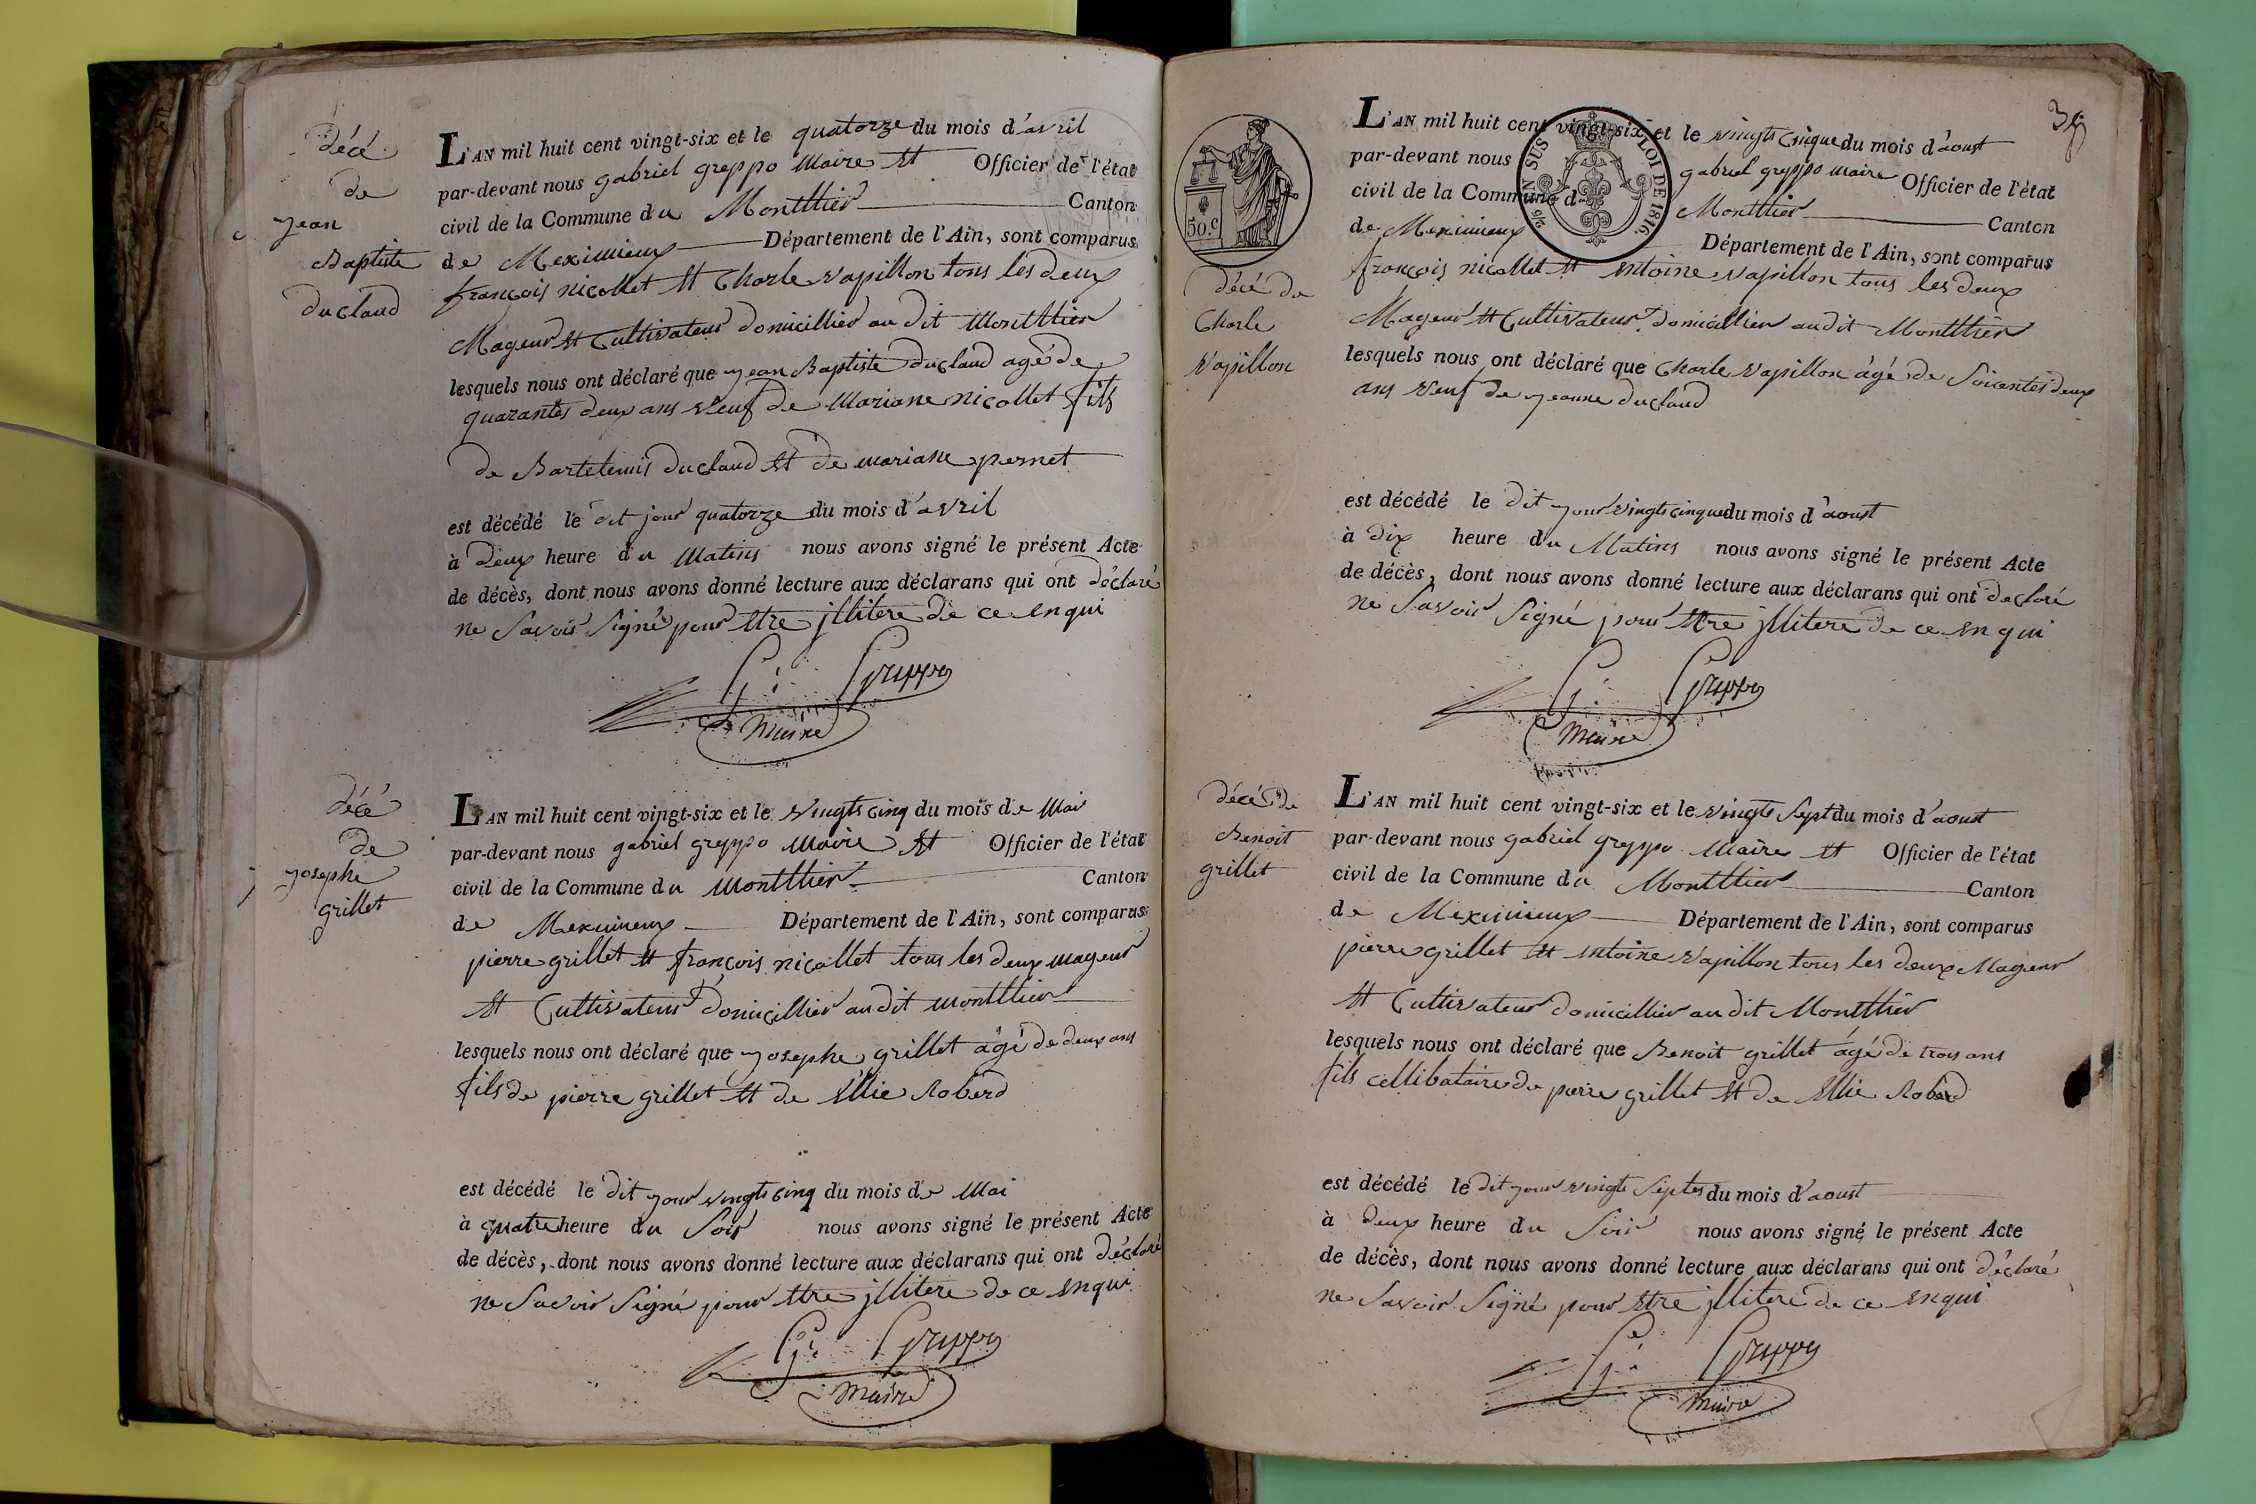 décé
de
jean
Baptiste
duclaud
L'AN mil huit cent vingt-six et le quatorze du mois d'avril
par-devant nous gabriel greppo Maire et Officier de l'état
civil de la Commune du Montthier Canton
de Meximieux Département de l'Ain, sont comparus
françois nicollet et Charle vapillon tous les deux
Mageur et Cultivateur domicillier au dit Montthier
lesquels nous ont déclaré que jean Baptiste duclaud agé de
quarantes deux ans veuf de Mariane nicollet fils
de Bartelemis duclaud et de mariane pernet
est décédé le dit jour quatorze du mois d'avril
à deux heure du Matins nous avons signé le présent Acte
de décès, dont nous avons donné lecture aux déclarans qui ont déclaré
ne Savoir Signé pour être jllitere de ce enqui
G. Greppo
Maire
décé
de
josephe
grillet
L'AN mil huit cent vingt-six et le vingts cinq du mois de Mai
par-devant nous gabriel greppo Maire et Officier de l'état
civil de la Commune du Montthier Canton
de Meximieux Département de l'Ain, sont comparus
pierre grillet et françois nicollet tous les deux mageur
et Cultivateur domicillier au dit montthier
lesquels nous ont déclaré que josephe grillet âgé de deux ans
fils de pierre grillet et de Ellie Roberd
est décédé le dit jour vingts cinq du mois de Mai
à quatre heure du Soir nous avons signé le présent Acte
de décès, dont nous avons donné lecture aux déclarans qui ont déclaré
ne Savoir Signé pour être jllitere de ce enqui
G. Greppo
Maire
50.c
décé de
Charle
vapillon
L'AN mil huit cent vingt-six et le vingts cinque du mois d'aoust
par-devant nous gabriel greppo maire Officier de l'état
civil de la Commune d Montthier Canton
de Meximieux Département de l'Ain, sont comparus
EN SUS LOI DE 1816.
françois nicollet et entoine vapillon tous les deux
Mageur et Cultivateur domicillier au dit Montthier
lesquels nous ont déclaré que Charle vapillon âgé de Soicantes deux
ans veuf de jeanne duclaud
est décédé le dit jour vingts cinque du mois d'aoust
à dix heure du Matins nous avons signé le présent Acte
de décès, dont nous avons donné lecture aux déclarans qui ont declaré
ne Savoir Signé pour être jllitere de ce enqui
G. Greppo
Maire
décé de
Benoit
grillet
L'AN mil huit cent vingt-six et le vingts Sept du mois d'aoust
par-devant nous gabriel greppo Maire et Officier de l'état
civil de la Commune du Montthier Canton
de Meximieux Département de l'Ain, sont comparus
pierre grillet et entoine vapillon tous les deux Mageur
et Cultivateur domicillier au dit Montthier
lesquels nous ont déclaré que Benoit grillet âgé de trois ans
fils cellibataire de pierre grillet et de Ellie Roberd
est décédé le dit jour vingts Septes du mois d'aoust
à deux heure du Soir nous avons signé le présent Acte
de décès, dont nous avons donné lecture aux déclarans qui ont déclaré
ne Savoir Signé pour être jllitere de ce enqui
G. Greppo
Maire